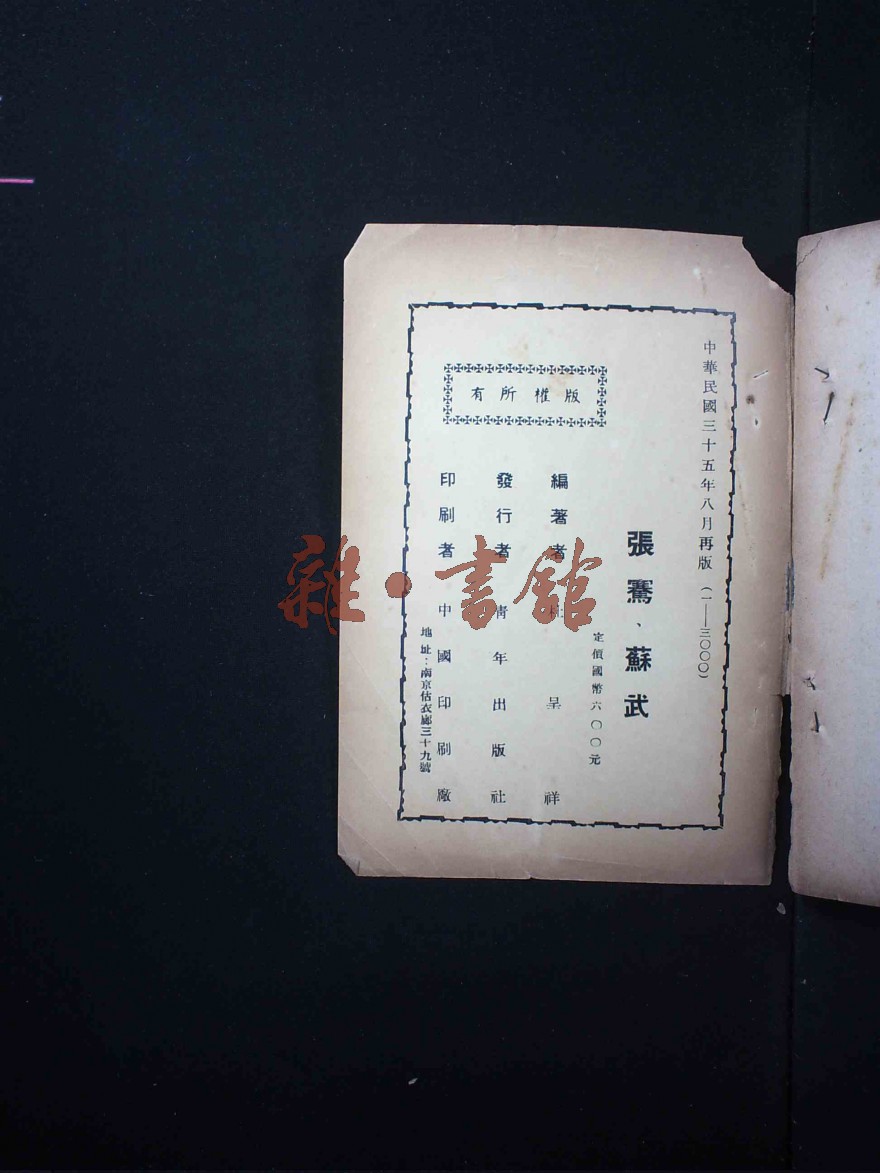 中華民國三十五年八月再版（一——三〇〇〇）
張騫、蘇武
定價國幣六〇〇元
編著者 呈祥
發行者 青年出版社
印刷者 中國印刷廠
地址：南京估衣廊三十九號
版權所有
雜·書館